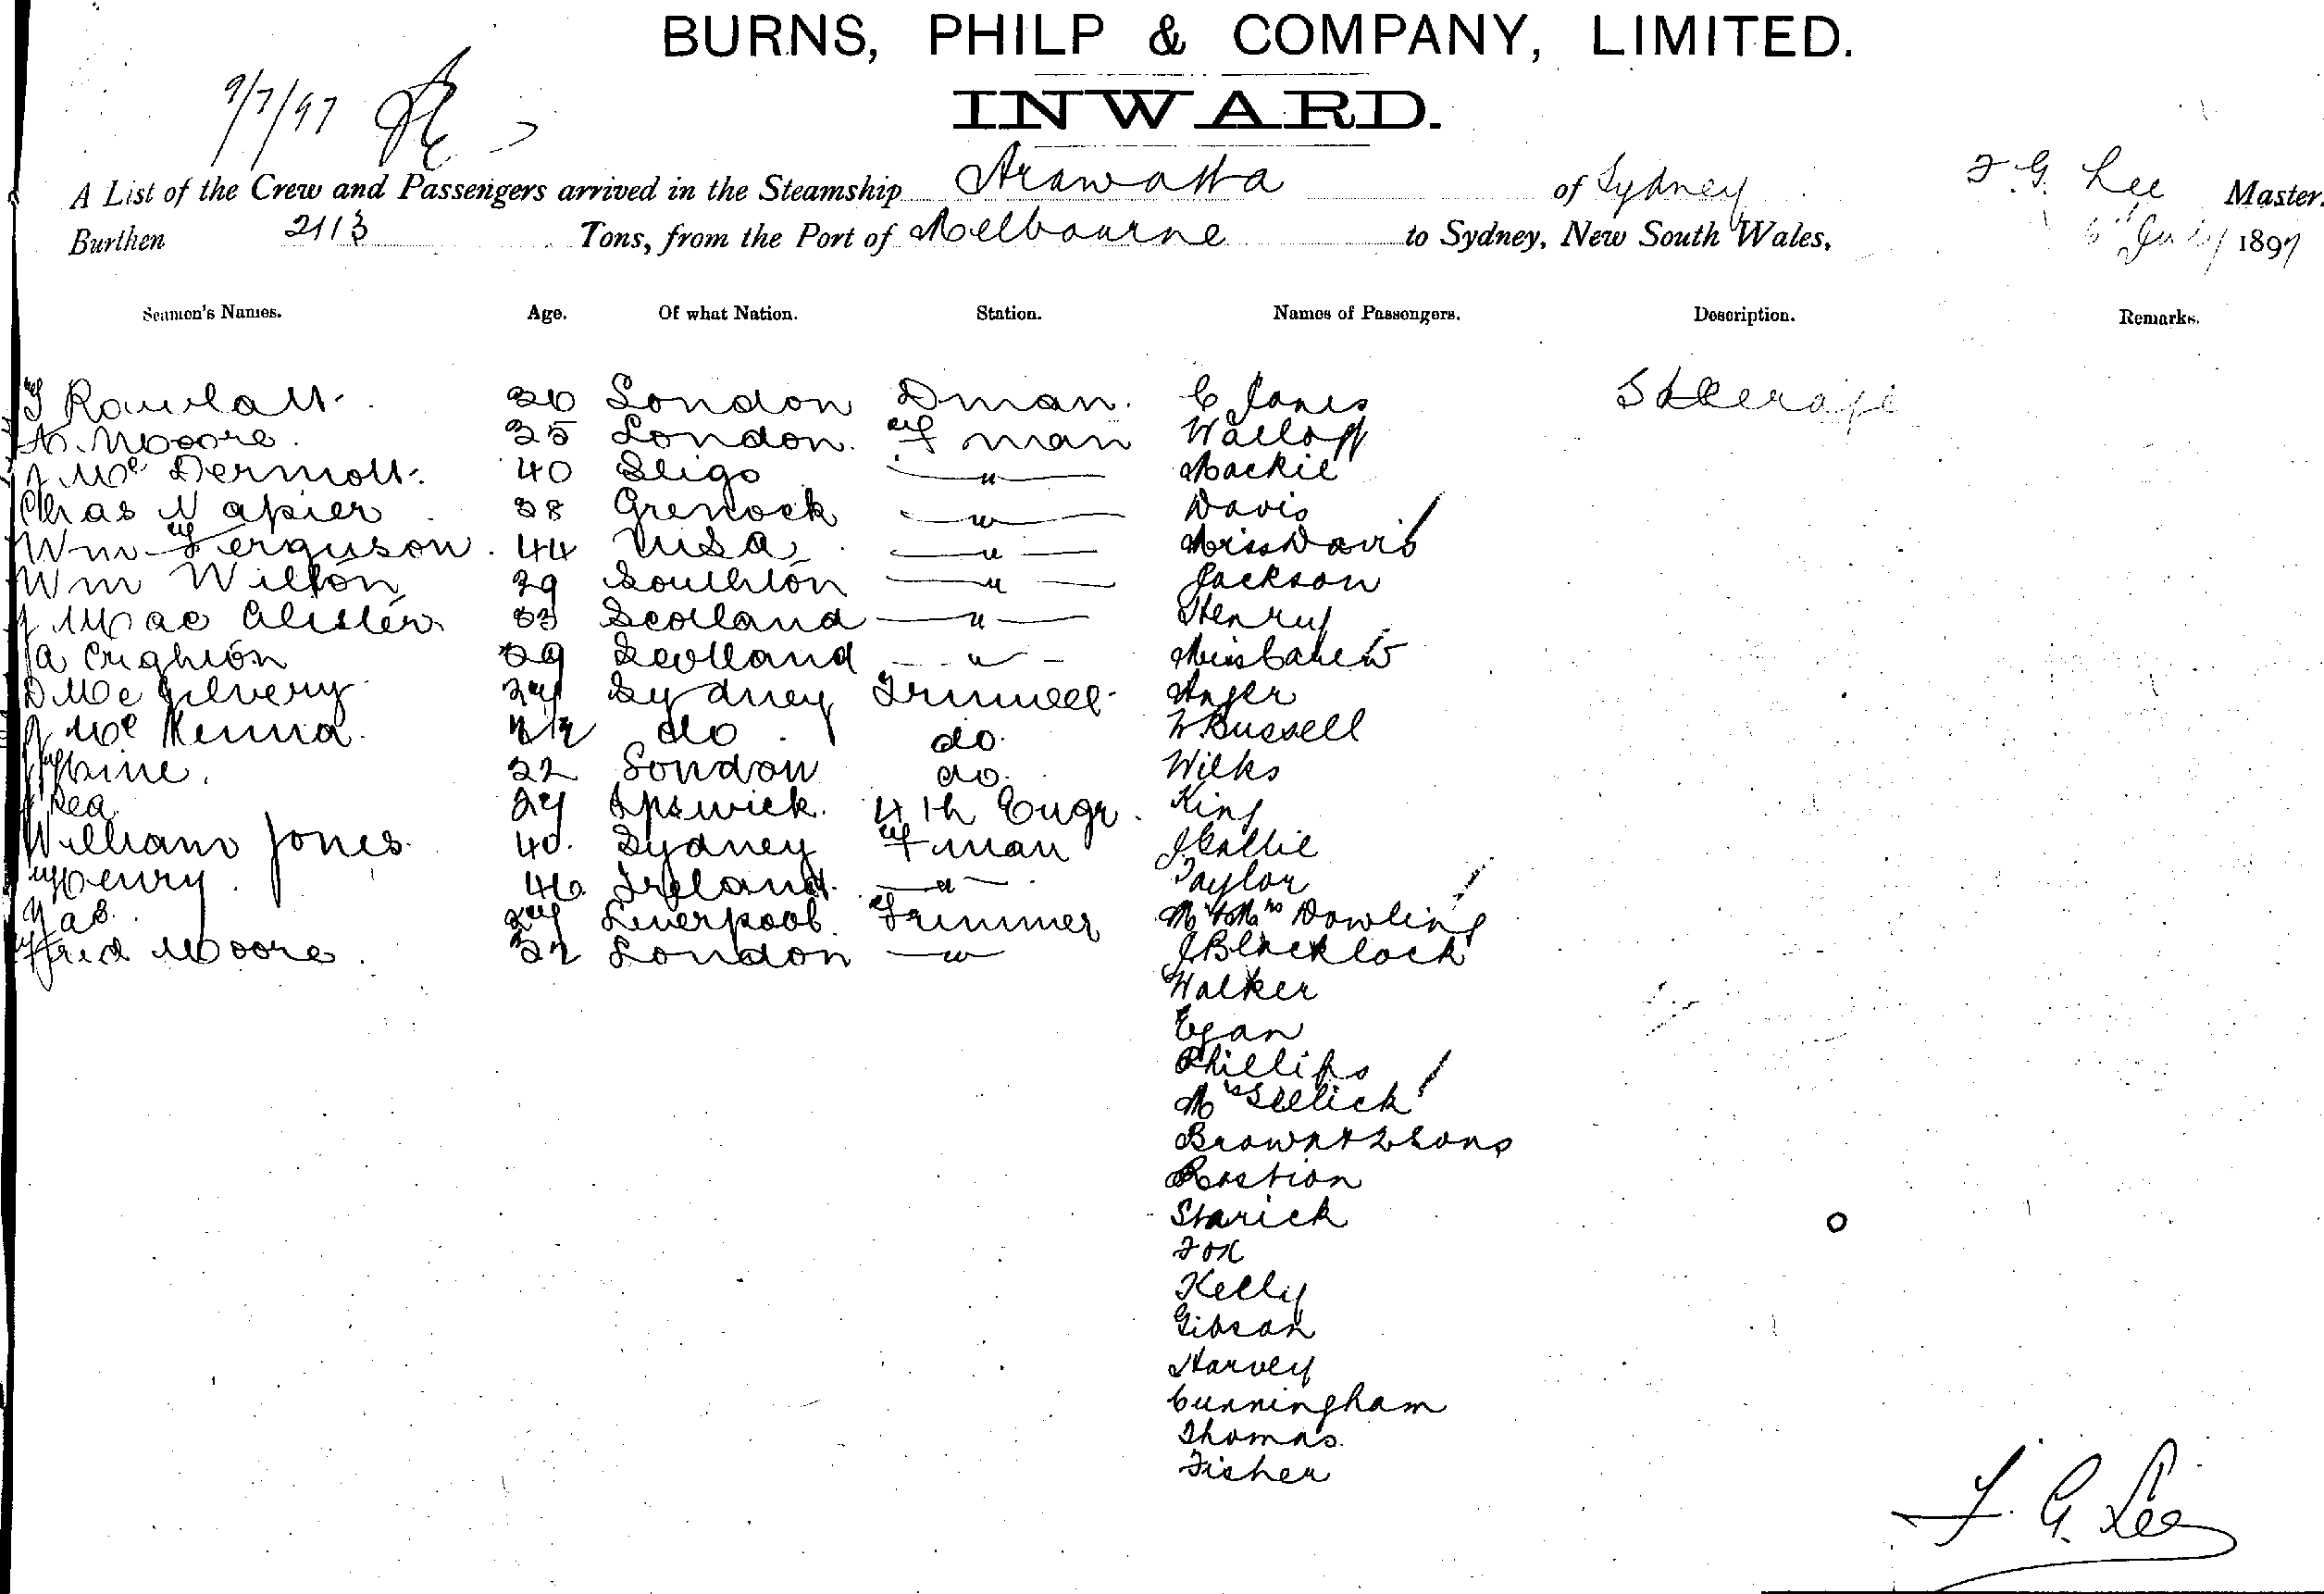 BURNS, PHILP & COMPANY, LIMITED.
9/7/97
INWARD.
A List of the Crew and Passengers arrived in the Steamship Arawatta of Sydney F. G. Lee Master.
Burthen 2113 Tons, from the Port of Melbourne to Sydney, New South Wales, 6th July 1897
Seamen's Names. Age. Of what Nation. Station. Names of Passengers. Description. Remarks.
London Dman. C Jones Steerage
Moore. 35 London. F man
J Mc Dermott. 40 Sligo " Mackie
Chas Napier 38 Grenock " Davis
Wm Ferguson. 44 USA " Miss Davis
Wm Wilton 39 Southton " Jackson
J Mac Alister 53 Scotland " Henry
A Crighton 39 Scotland "
D Mc Gilvery Sydney Anger
J Mc Kenna do do. W Bussell
22 London do. Wilks
J Rea Ipswick. 4th Engr. King
William Jones. 40. Sydney F man
Henry. 46 Ireland. " Taylor
Liverpool Trimmer Mr & Mrs Dowling
Fred Moore. 32 London " J Blacklock
Walker
Egan
Phillips
Mrs Sellick
Brown & 2 Sons
Bastion
Starick
Fox
Kelly
Gibson
Harvey
Cunningham
Thomas.
Fisher
F. G. Lee